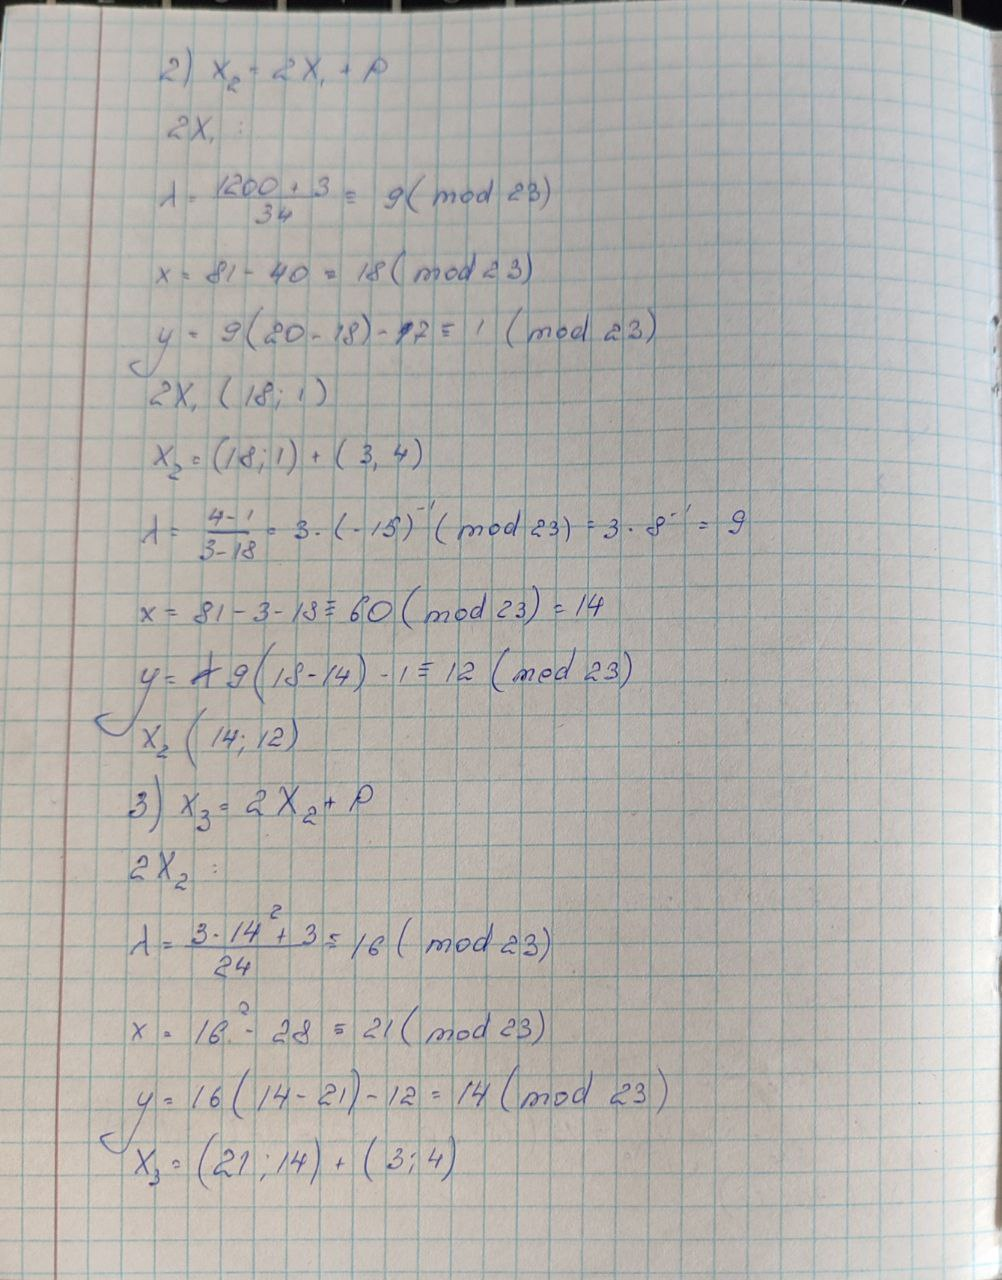 2) X₂ = 2X₁ + P
2X₁ :
λ = (1200 + 3)/34 ≡ 9 (mod 23)
x = 81 - 40 = 18 (mod 23)
y = 9(20 - 18) - 17 ≡ 1 (mod 23)
2X₁ (18; 1)
X₂ = (18; 1) + (3, 4)
λ = (4-1)/(3-18) = 3 · (-15)⁻¹ (mod 23) = 3 · 8⁻¹ = 9
x = 81 - 3 - 18 ≡ 60 (mod 23) = 14
y = 9(18-14) - 1 ≡ 12 (mod 23)
X₂ (14; 12)
3) X₃ = 2X₂ + P
2X₂ :
λ = (3 · 14² + 3)/24 ≡ 16 (mod 23)
x = 16² - 28 ≡ 21 (mod 23)
y = 16(14 - 21) - 12 = 14 (mod 23)
X₃ = (21; 14) + (3; 4)